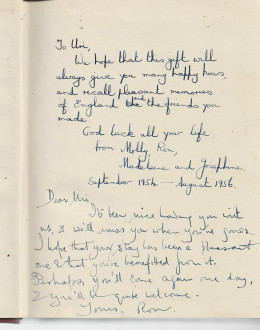 To Uri,
We hope that this gift will
always give you many happy hours,
and recall pleasant memories
of England and the friends you
made.
God luck all your life
from Molly, Ron,
Madeleine and Josephine.
September 1954 — August 1956.
Dear Uri,
It's been nice having you with
us, & will miss you when you've gone.
I hope that your stay has been a pleasant
one & that you've benefitted from it.
Perhaps you'll come again one day,
& you'll be quite welcome.
Yours, Ron.